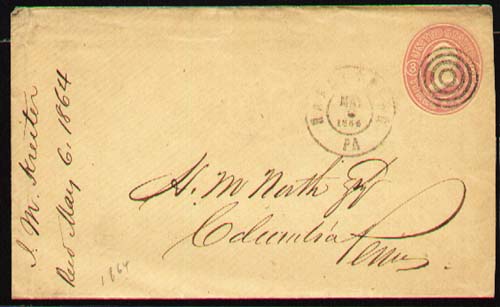 J. M. Kreiter
Recd May 6, 1864
1864
MAY
1864
PA
H. M North Esq
Columbia
Penna